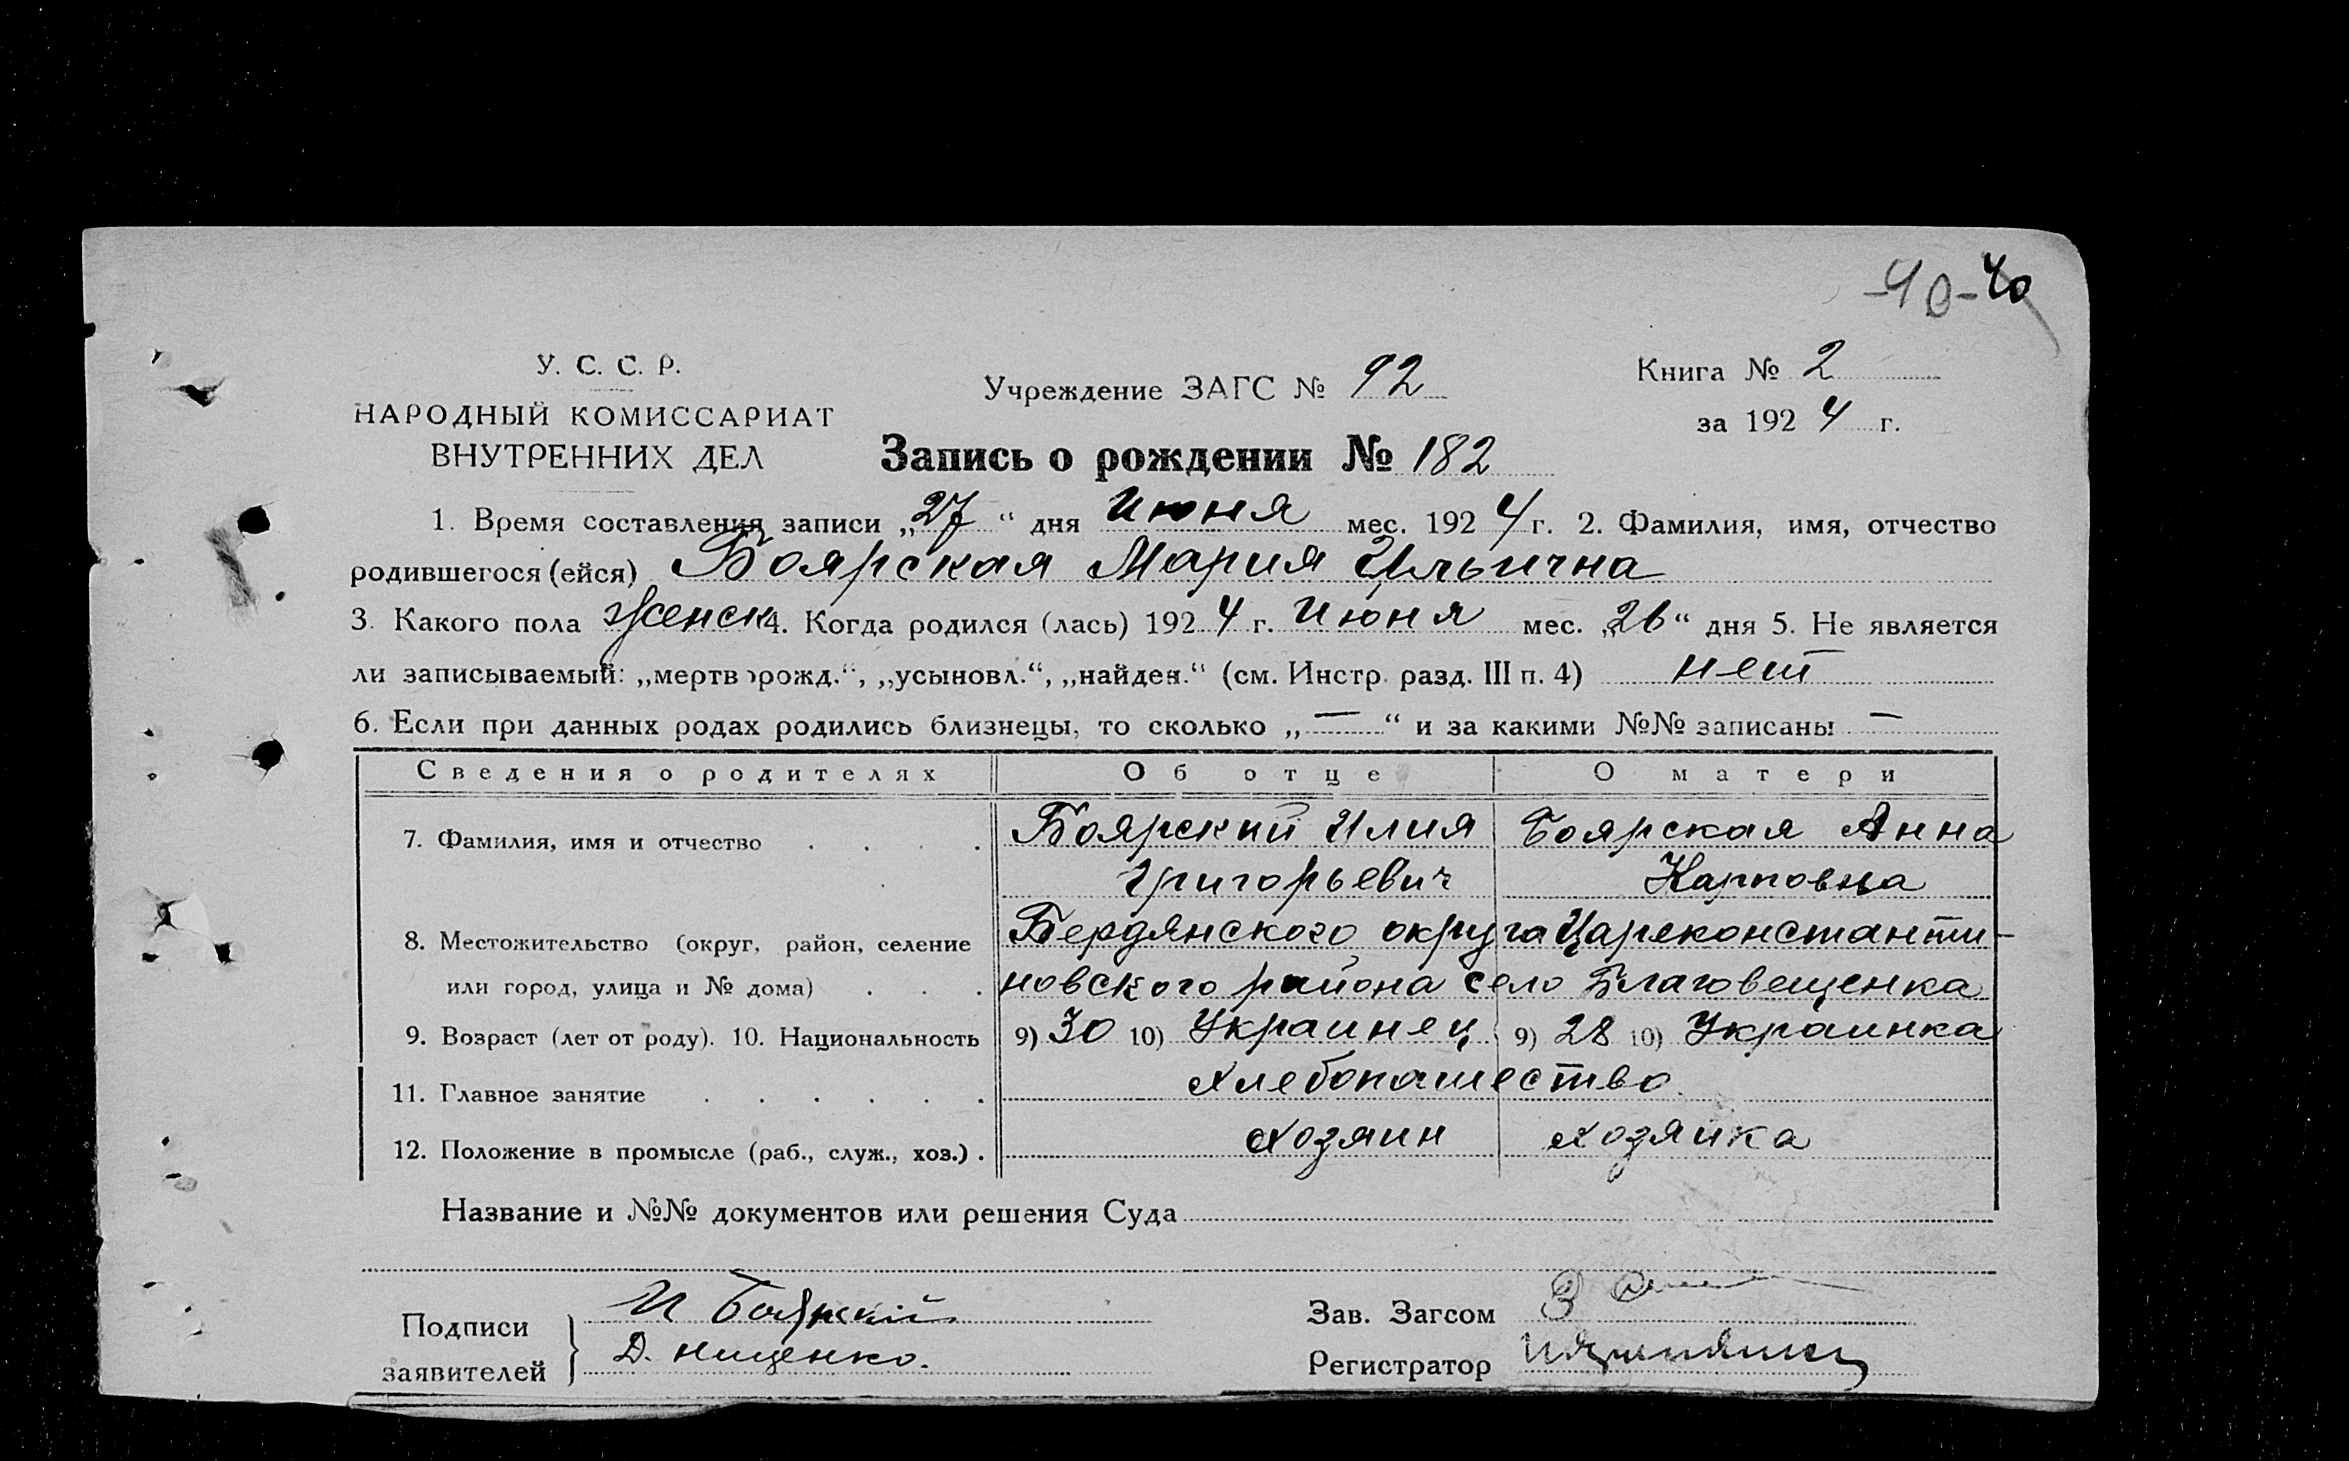 -40- 40
У. С. С. Р.
НАРОДНЫЙ КОМИССАРИАТ
ВНУТРЕННИХ ДЕЛ
Учреждение ЗАГС № 92
Книга № 2
за 1924 г.
Запись о рождении № 182
1. Время составления записи „27“ дня Июня мес. 1924 г. 2. Фамилия, имя, отчество
родившегося (ейся) Боярская Мария Ильична
3. Какого пола женск 4. Когда родился (лась) 1924 г. Июня мес. „26“ дня 5. Не является
ли записываемый: „мертворожд.“, „усыновл.“, „найден.“ (см. Инстр. разд. III п. 4) нет
6. Если при данных родах родились близнецы, то сколько „—“ и за какими №№ записаны —
Сведения о родителях Об отце О матери
7. Фамилия, имя и отчество . . . . Боярский Илия Боярская Анна
Григорьевич Карповна
8. Местожительство (округ, район, селение Бердянского округа Цареконстанти-
или город, улица и № дома) . . . новского района село Благовещенка
9. Возраст (лет от роду). 10. Национальность 9) 30 10) Украинец 9) 28 10) Украинка
11. Главное занятие . . . . . . Хлебопашество
12. Положение в промысле (раб., служ., хоз.) . хозяин хозяйка
Название и №№ документов или решения Суда
Подписи
заявителей
И Боярский
Д. Нищенко.
Зав. Загсом
Регистратор